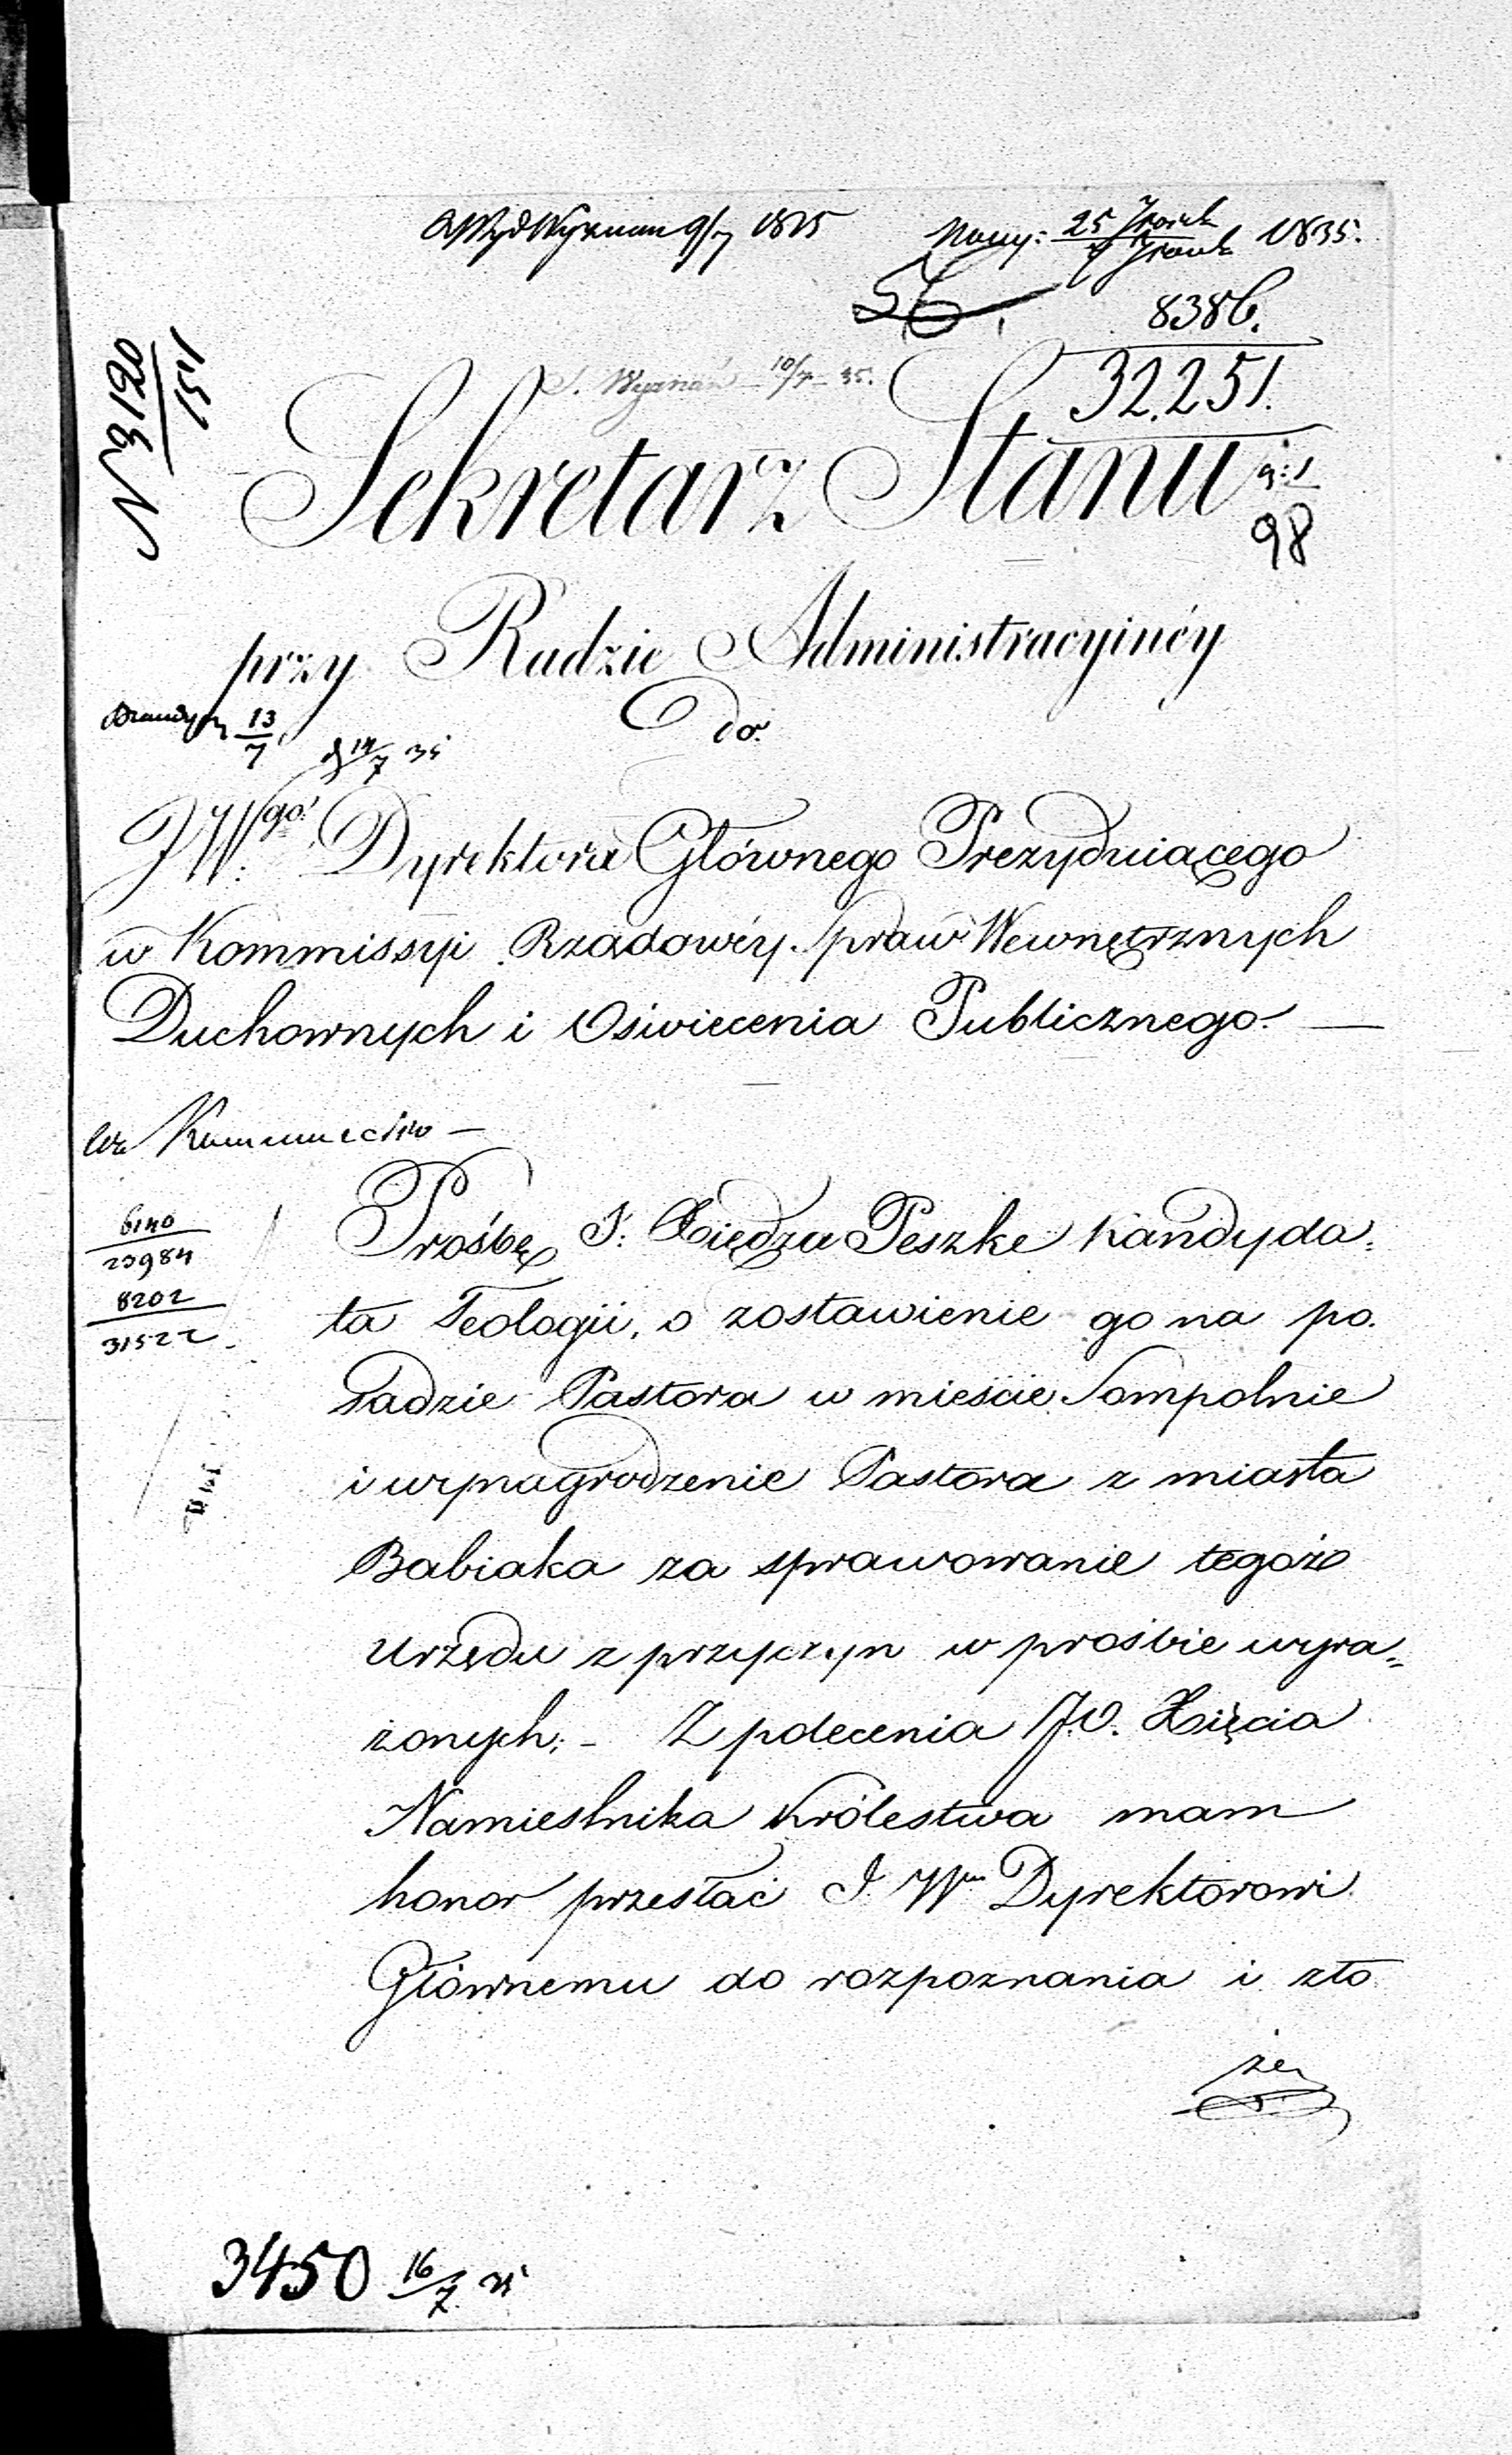 1835.
8386.
32.251.
N 3120
151
S. Wyznań 10/7 35.
Sekretarz Stanu
98
przy Radzie Administracyinéy
13
7
14/7 35
Do
JWgo Dyrektora Głównego Prezyduiącego
w Kommissyi Rządowéy Spraw Wewnętrznych
Duchownych i Oświecenia Publicznego. —
6140
23984
8202
31522
Prośbę J: Xiędza Peszke Kandyda=
ta Teologii, o zostawienie go na po.
sadzie Pastora w mieście Sompolnie
i wynagrodzenie Pastora z miasta
Babiaka za sprawowanie tegoż
Urzędu z przyczyn w prośbie wyra=
żonych; – Z polecenia J.O. Xięcia
Namiestnika Królestwa mam
honor przesłać J. Wmu Dyrektorowi
Głównemu do rozpoznania i zło
że
3450 16/7 35